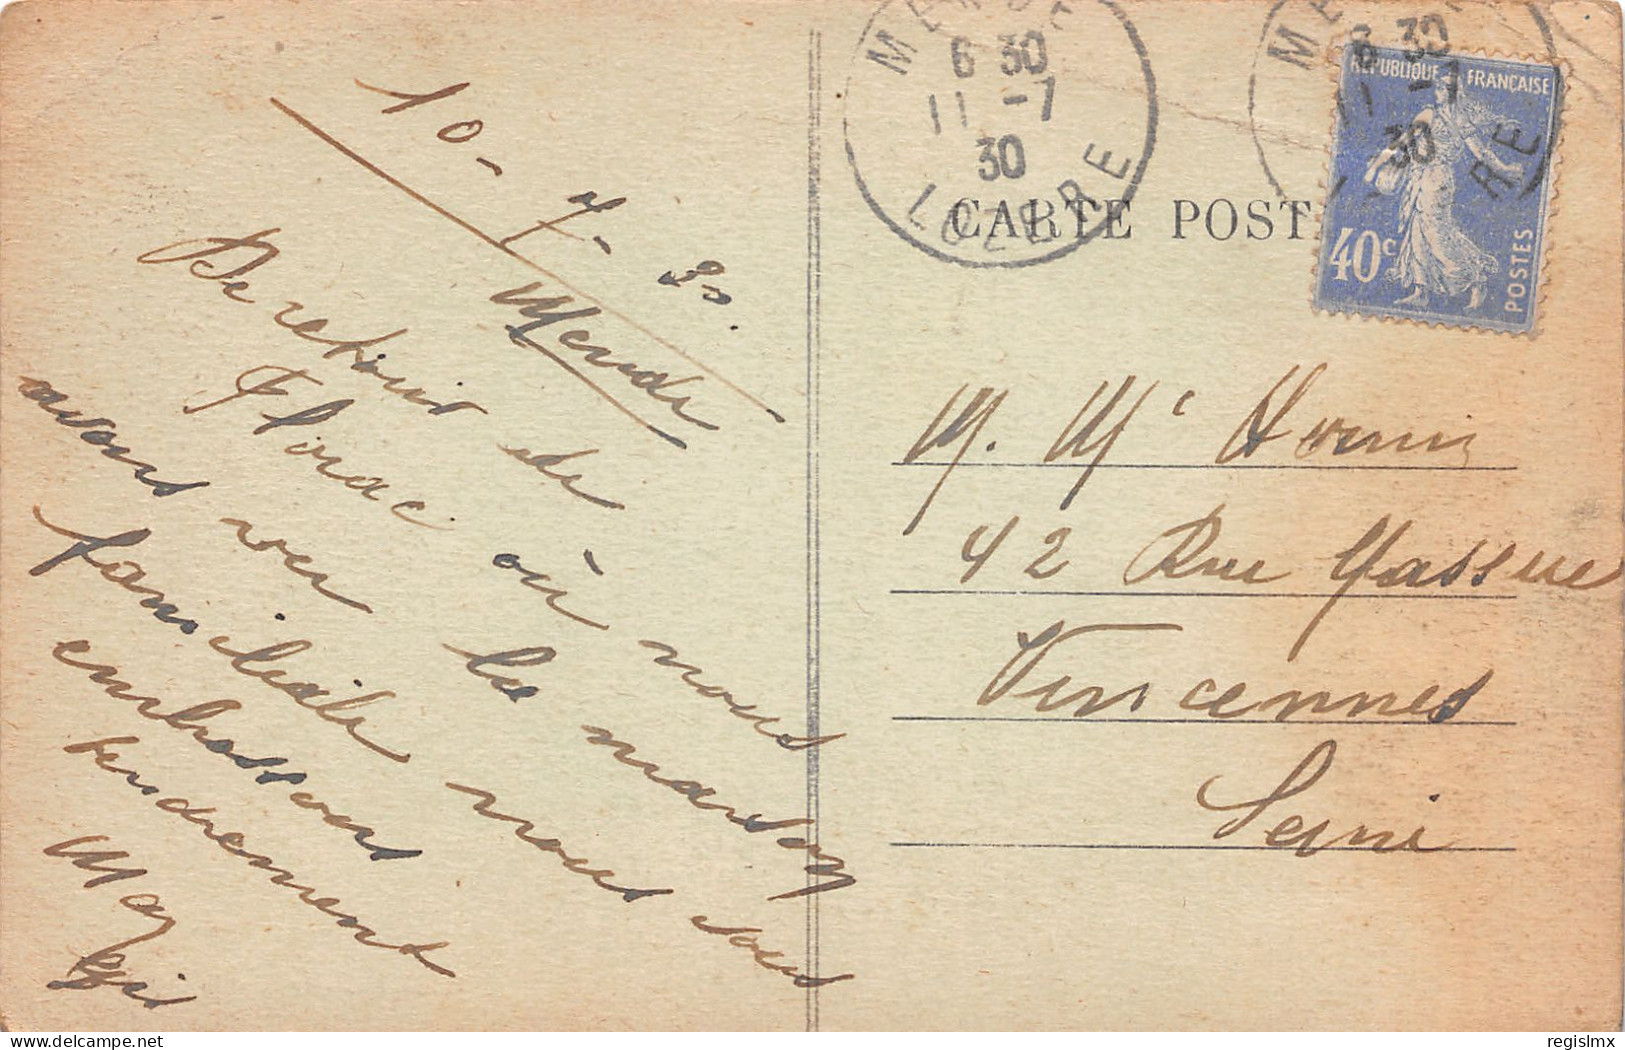 10-7-30.
Mende
De retour de
Florac où nous
avons vu la maison
familiale nous vous
embrassons
tendrement
MENDE
6 30
11 -7
30
LOZERE
MENDE
6 30
11 -7
30
RE
CARTE POST
REPUBLIQUE FRANÇAISE
40c
POSTES
M. Me
42 Rue Massue
Vincennes
Seine
delcampe.net
regislmx